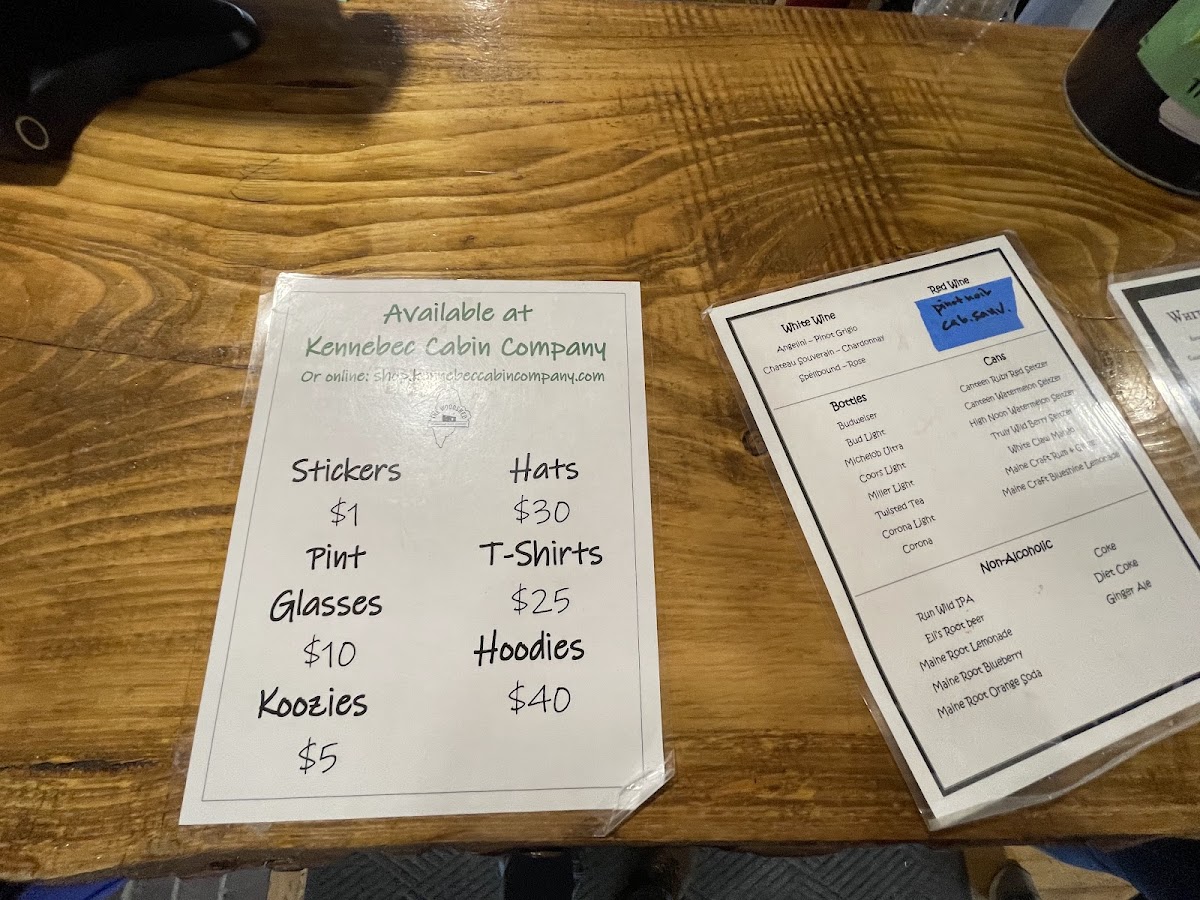 Available at
Kennebec Cabin Company
Or online: shop.kennebeccabincompany.com
Stickers
$1
Pint
Glasses
$10
Koozies
$5
Hats
$30
T-Shirts
$25
Hoodies
$40
White Wine
Angelini - Pinot Grigio
Chateau Souverain - Chardonnay
Spellbound - Rose
Red Wine
pinot noir
cab. sauv.
Bottles
Budweiser
Bud Light
Michelob Ultra
Coors Light
Miller Light
Twisted Tea
Corona Light
Corona
Cans
Canteen Ruby Red Seltzer
Canteen Watermelon Seltzer
High Noon Watermelon Seltzer
Truly Wild Berry Seltzer
White Claw Mango
Maine Craft Rum + Ginger
Maine Craft Blueshine Lemonade
Non-Alcoholic
Run Wild IPA
Eli's Root beer
Maine Root Lemonade
Maine Root Blueberry
Maine Root Orange Soda
Coke
Diet Coke
Ginger Ale